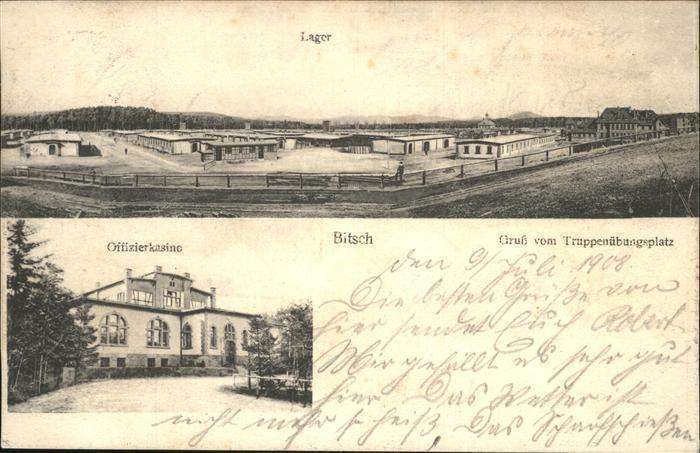 Lager
Offizierkasino
Bitsch
Gruß vom Truppenübungsplatz
den 9/Juli 1908
Die besten Grüße von
hier sendet Euch Robert.
Mir gefällt es sehr gut
hier. Das Wetter ist
nicht mehr so heiß. Das Scharfschießen